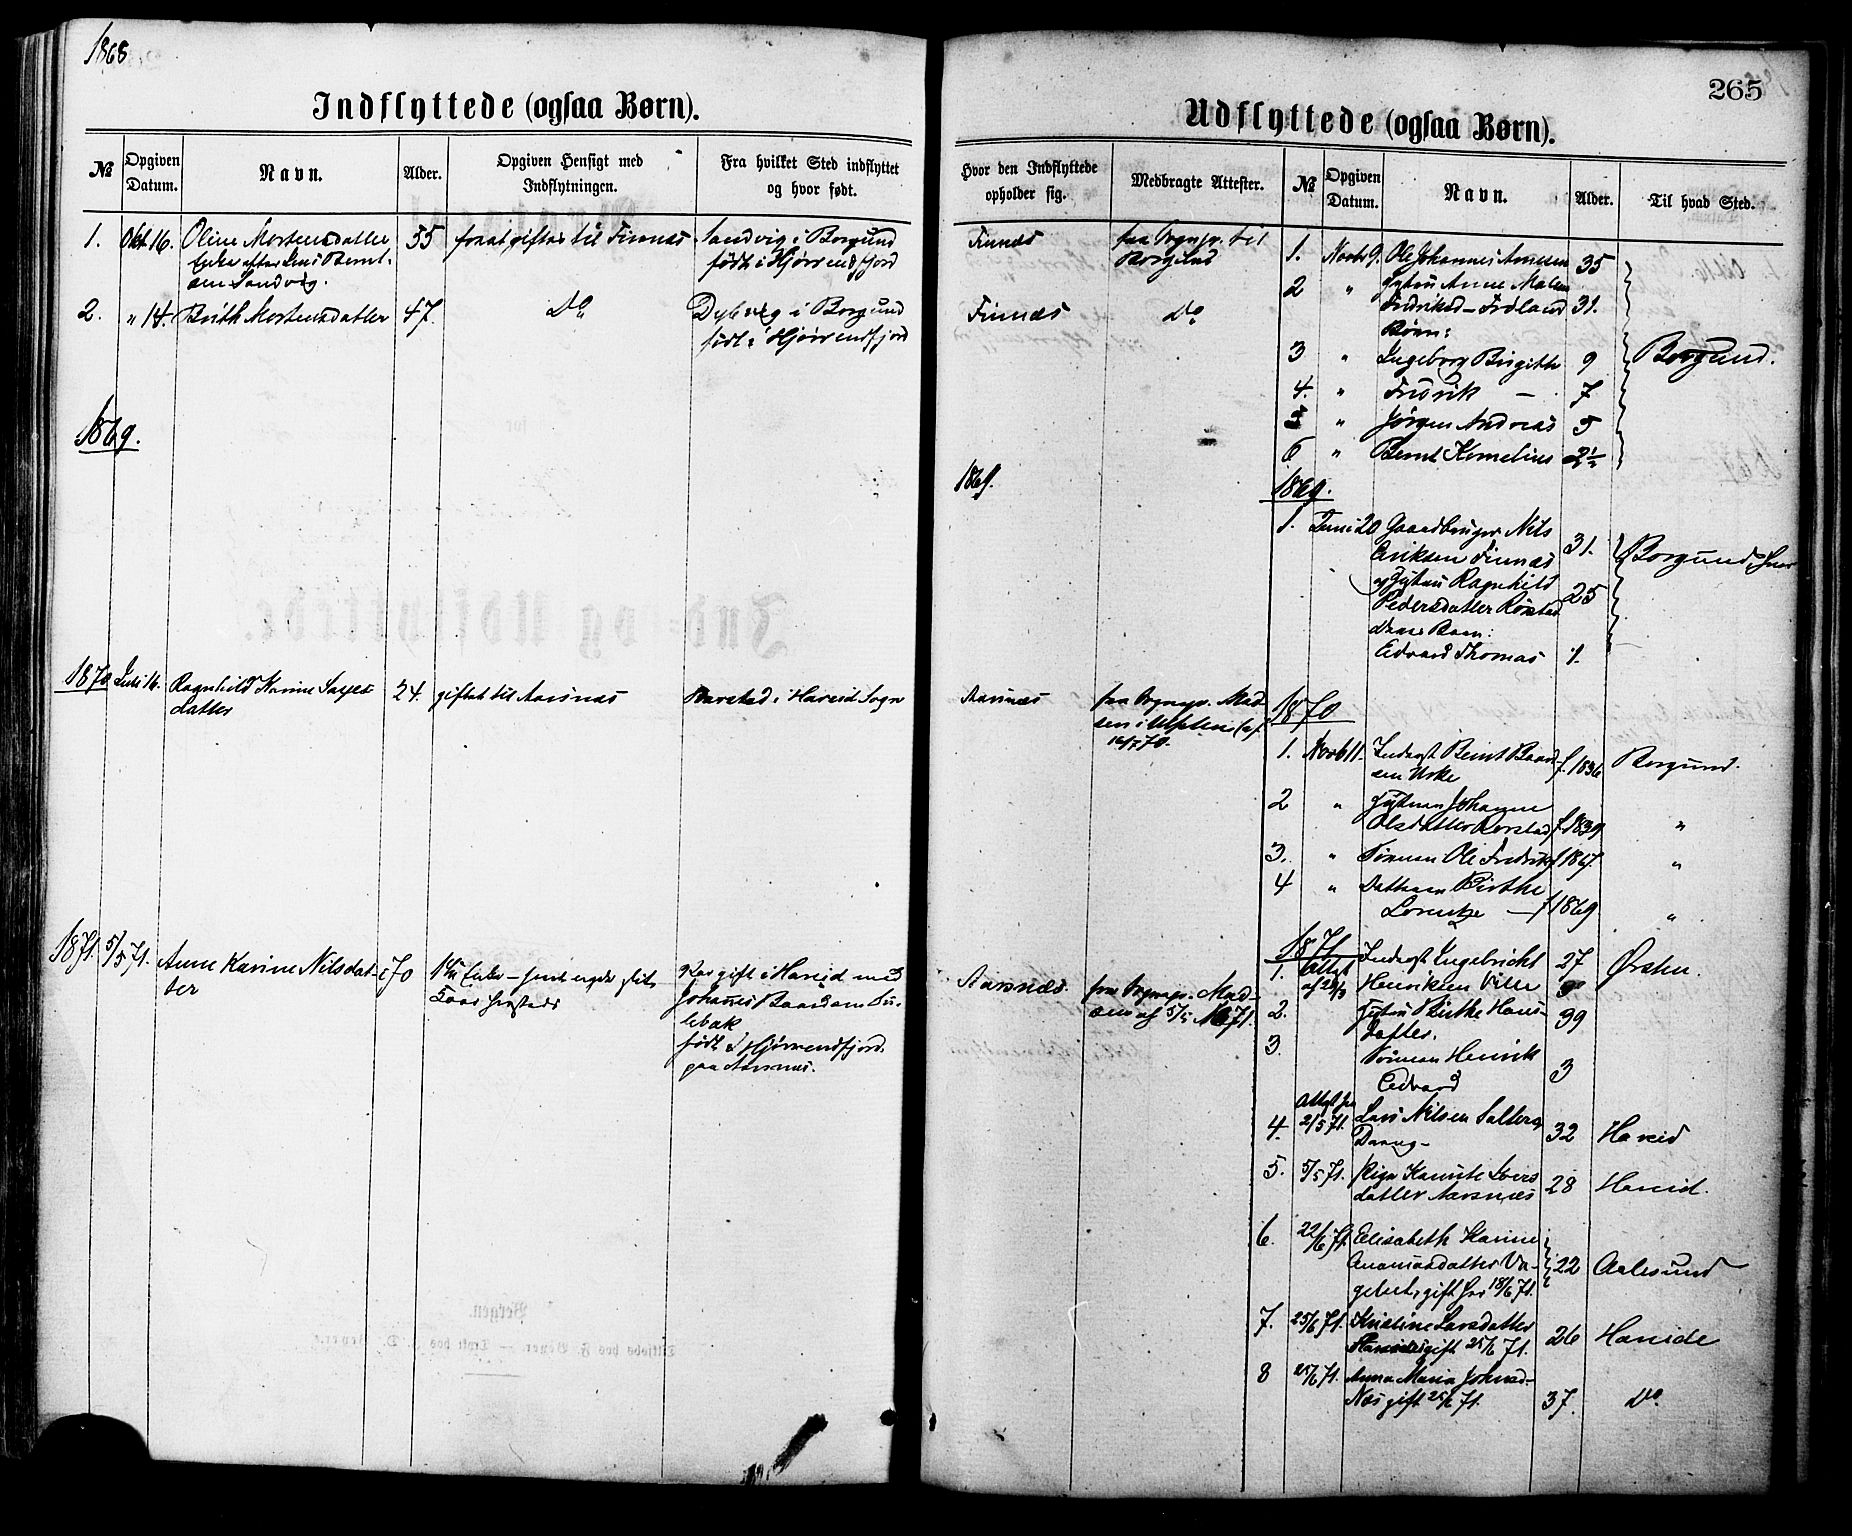 1868
Indflyttede (ogsaa Børn).
№
Opgiven Datum.
Navn.
Alder.
Opgiven Hensigt med Indflytningen.
Fra hvilket Sted indflyttet og hvor født.
1. Okt. 16. Oline Mortensdatter 55 for at giftes til Finnæs Sandvig i Borgund
Enke efter Bernt- født i Hjørrendfjord
sen Sandvig.
2. " 14. Brith Mortensdatter 47 Do Dybvig i Borgund
født i Hjørrendfjord
1869.
1870 Juli 16. Ragnhild Karine
datter 24. giftet til Aarsnæs i Hareid Sogn
1871. 5/5 71. Anne Karine Nilsdat- 70 Enke
ter
Har gift i Hareid med
Johannes
født i Hjørrendfjord
paa Aarsnæs.
265
Udflyttede (ogsaa Børn).
Hvor den Indflyttede opholder sig.
Medbragte Attester.
№
Opgiven Datum.
Navn.
Alder.
Til hvad Sted.
Finnæs fra Sognepr. til
Borgund
Finnæs do
1869.
Aarsnæs fra Sognepr. Mad-
sen i af
16/7 70.
Aarsnæs. fra Sognepr. Mad-
sen af 5/5 71.
1. Novbr 9. Ole Johannes Arnesen 35
2 " Hustru Anne Malene
Fredriksd 31.
Børn:
3 " Ingeborg Birgitte 9 Borgund.
4. " Fredrik — 7
5 " Jørgen Andreas 5
6 " Bernt Kornelius 2½
1869.
1. Juni 20 Gaardbruger Nils
Eriksen Finnæs 31. Borgund,
og Hustru Ragnhild
Pedersdatter Rørstad 25
deres Barn:
Edvard Thomas 1.
1870
1. Novb 11. Inderst Bernt Baard-
sen Urke f. 1836 Borgund.
2 " Hustruen Johanne
Olsdatter Rørstad f. 1839 "
3. " Sønnen Ole Fredrik f 1867. "
4 " Datteren Birthe
— f 1869 "
1871.
1. Attest Inderst Ingebrigt 27 Ørsten.
Henriksen Ville
2. Hustru Birthe Hans- 39
datter.
3. Sønnen Henrik
Edvard 3
Attest fra
4. 2/5 71. Lars Nilsen
32 Hareid
5. 5/5 71. Lars
datter Aarsnæs 28 Hareid.
6. 22/6 71. Elisabeth Karine
22 Aalesund
gift her 18/6 71.
7. 25/6 71. Kristine Larsdatter
gift 25/6 71. 26 Hareide
8 25/6 71. Anna Maria
Næs gift 25/6 71. 37. do.